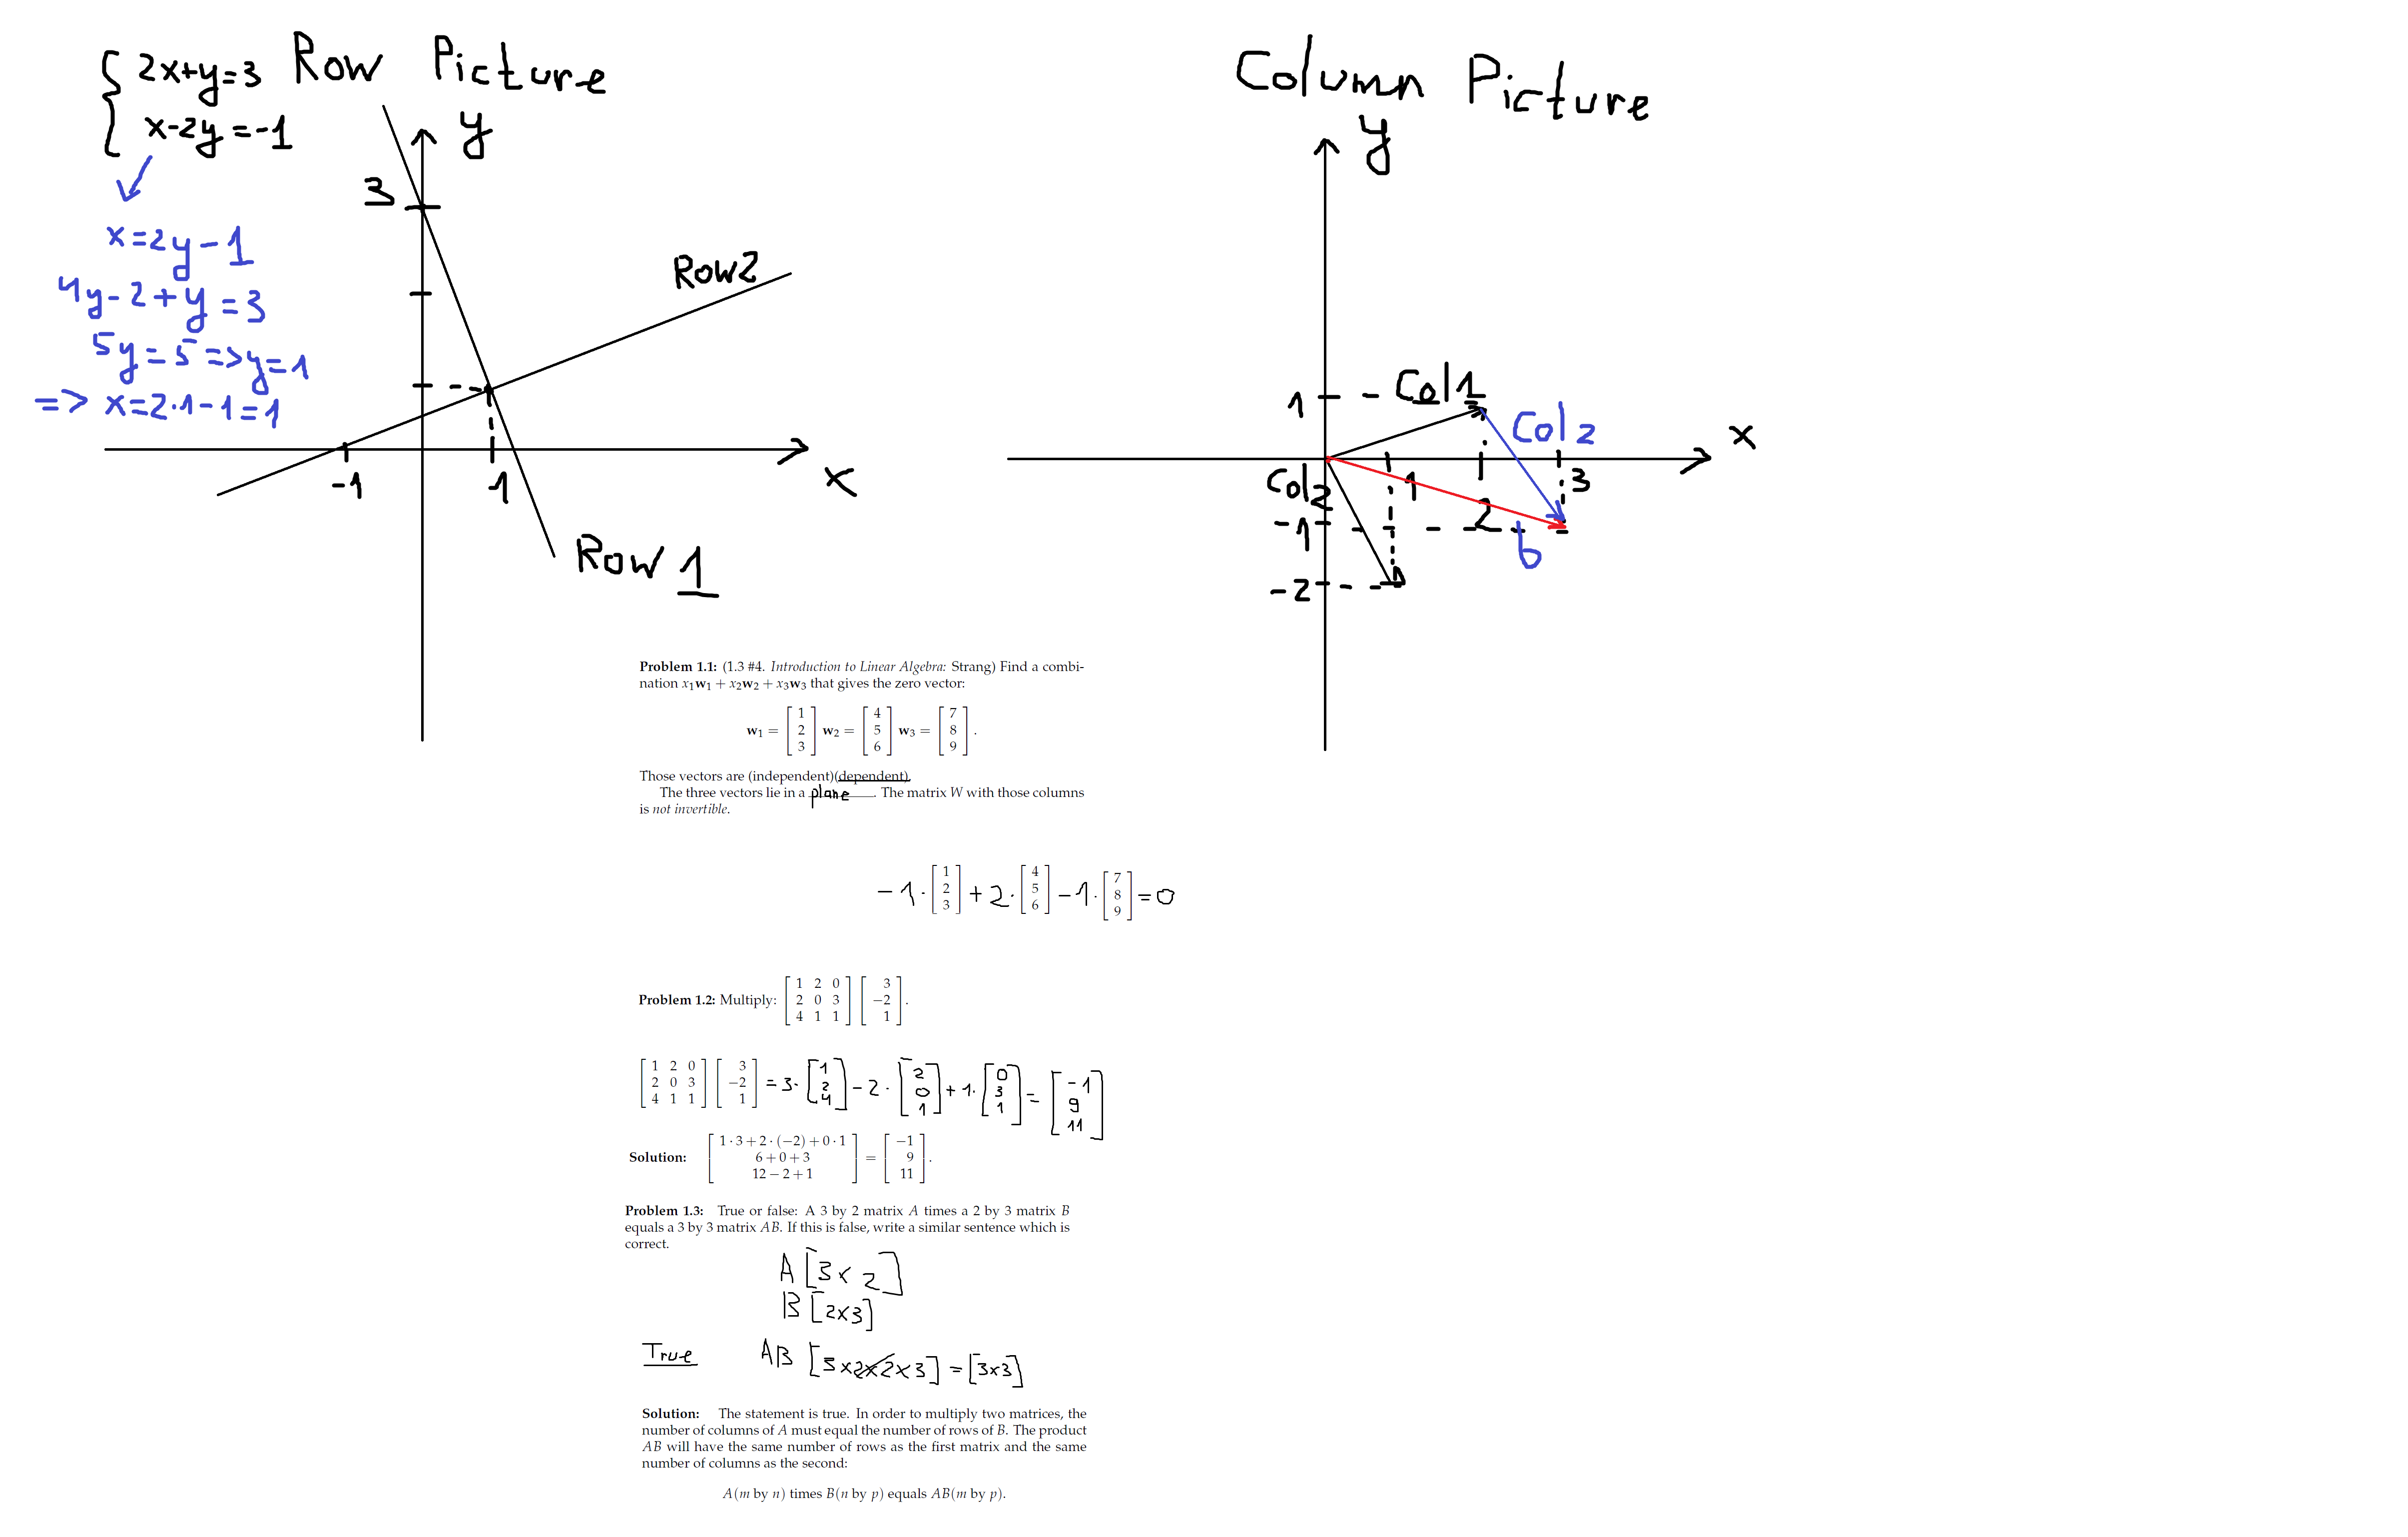 Row Picture
{ 2x+y=3
x-2y=-1
x=2y-1
4y-2+y=3
5y=5=>y=1
=> x=2·1-1=1
y
3
Row2
-1
1
x
Row 1
Column Picture
y
1
Col1
Col2
x
Col2
1
3
-1
2
b
-2
Problem 1.1: (1.3 #4. Introduction to Linear Algebra: Strang) Find a combi-
nation x₁w₁ + x₂w₂ + x₃w₃ that gives the zero vector:
w₁ = [1 2 3] w₂ = [4 5 6] w₃ = [7 8 9].
Those vectors are (independent)(dependent).
The three vectors lie in a plane. The matrix W with those columns
is not invertible.
-1·[1 2 3] + 2·[4 5 6] - 1·[7 8 9] = 0
Problem 1.2: Multiply: [1 2 0; 2 0 3; 4 1 1] [3 −2 1].
[1 2 0; 2 0 3; 4 1 1] [3 −2 1] = 3·[1 2 4] - 2·[2 0 1] + 1·[0 3 1] = [-1 9 11]
Solution: [1·3+2·(−2)+0·1; 6+0+3; 12−2+1] = [−1 9 11].
Problem 1.3: True or false: A 3 by 2 matrix A times a 2 by 3 matrix B
equals a 3 by 3 matrix AB. If this is false, write a similar sentence which is
correct.
A [3x2]
B [2x3]
True AB [3x2x2x3] = [3x3]
Solution: The statement is true. In order to multiply two matrices, the
number of columns of A must equal the number of rows of B. The product
AB will have the same number of rows as the first matrix and the same
number of columns as the second:
A(m by n) times B(n by p) equals AB(m by p).